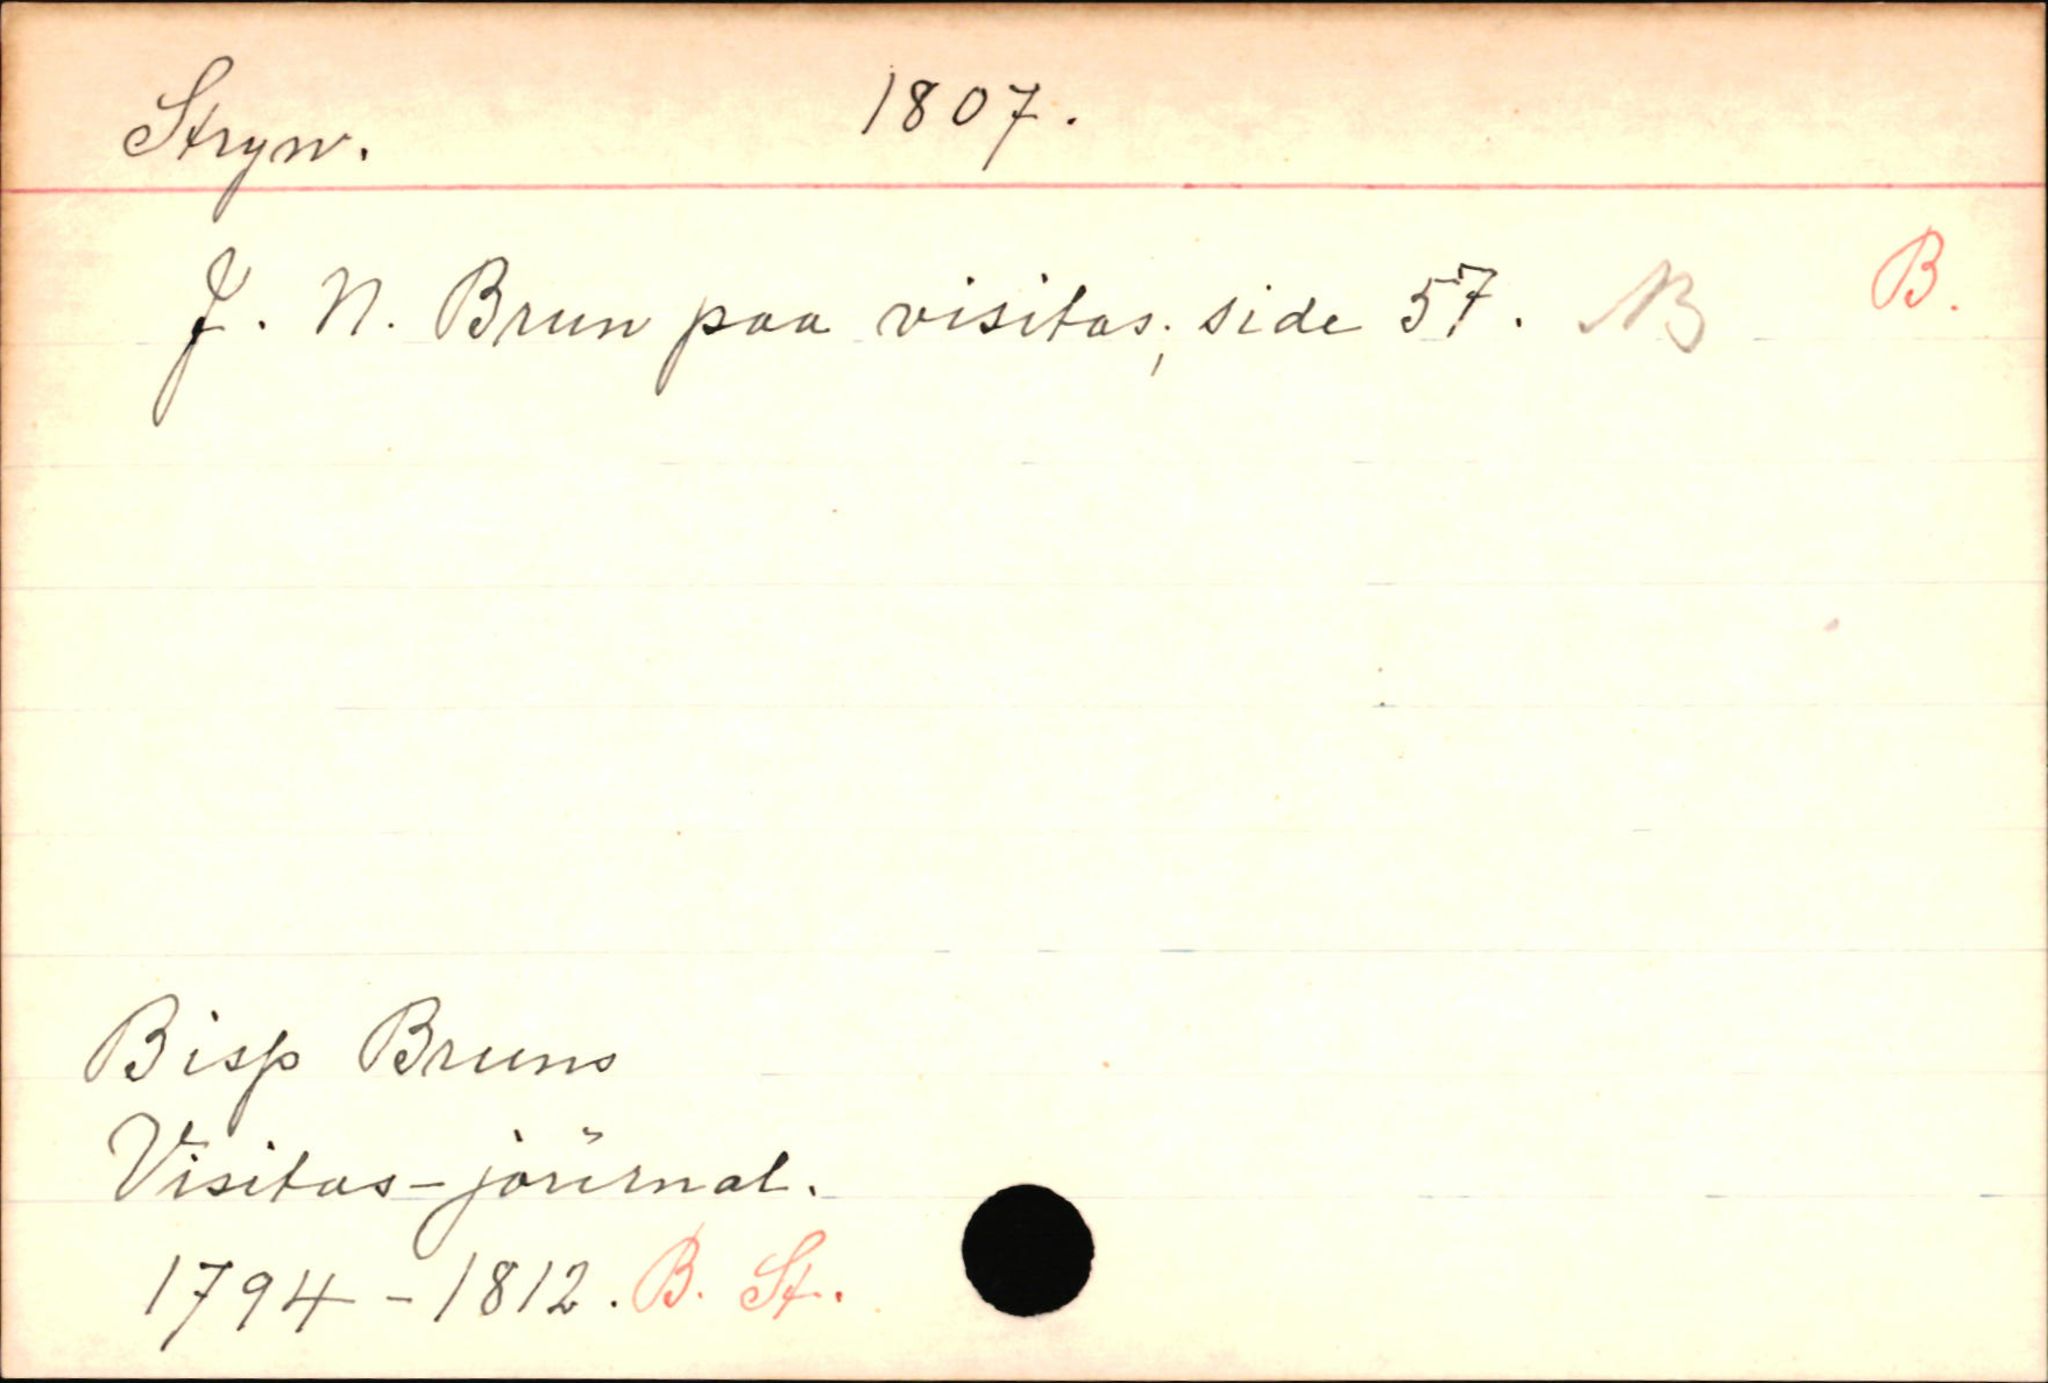 Stryn. 1807.
J. N. Brun paa visitas; side 57. NB B.
Bisp Bruns
Visitas-journal.
1794-1812. B. St.